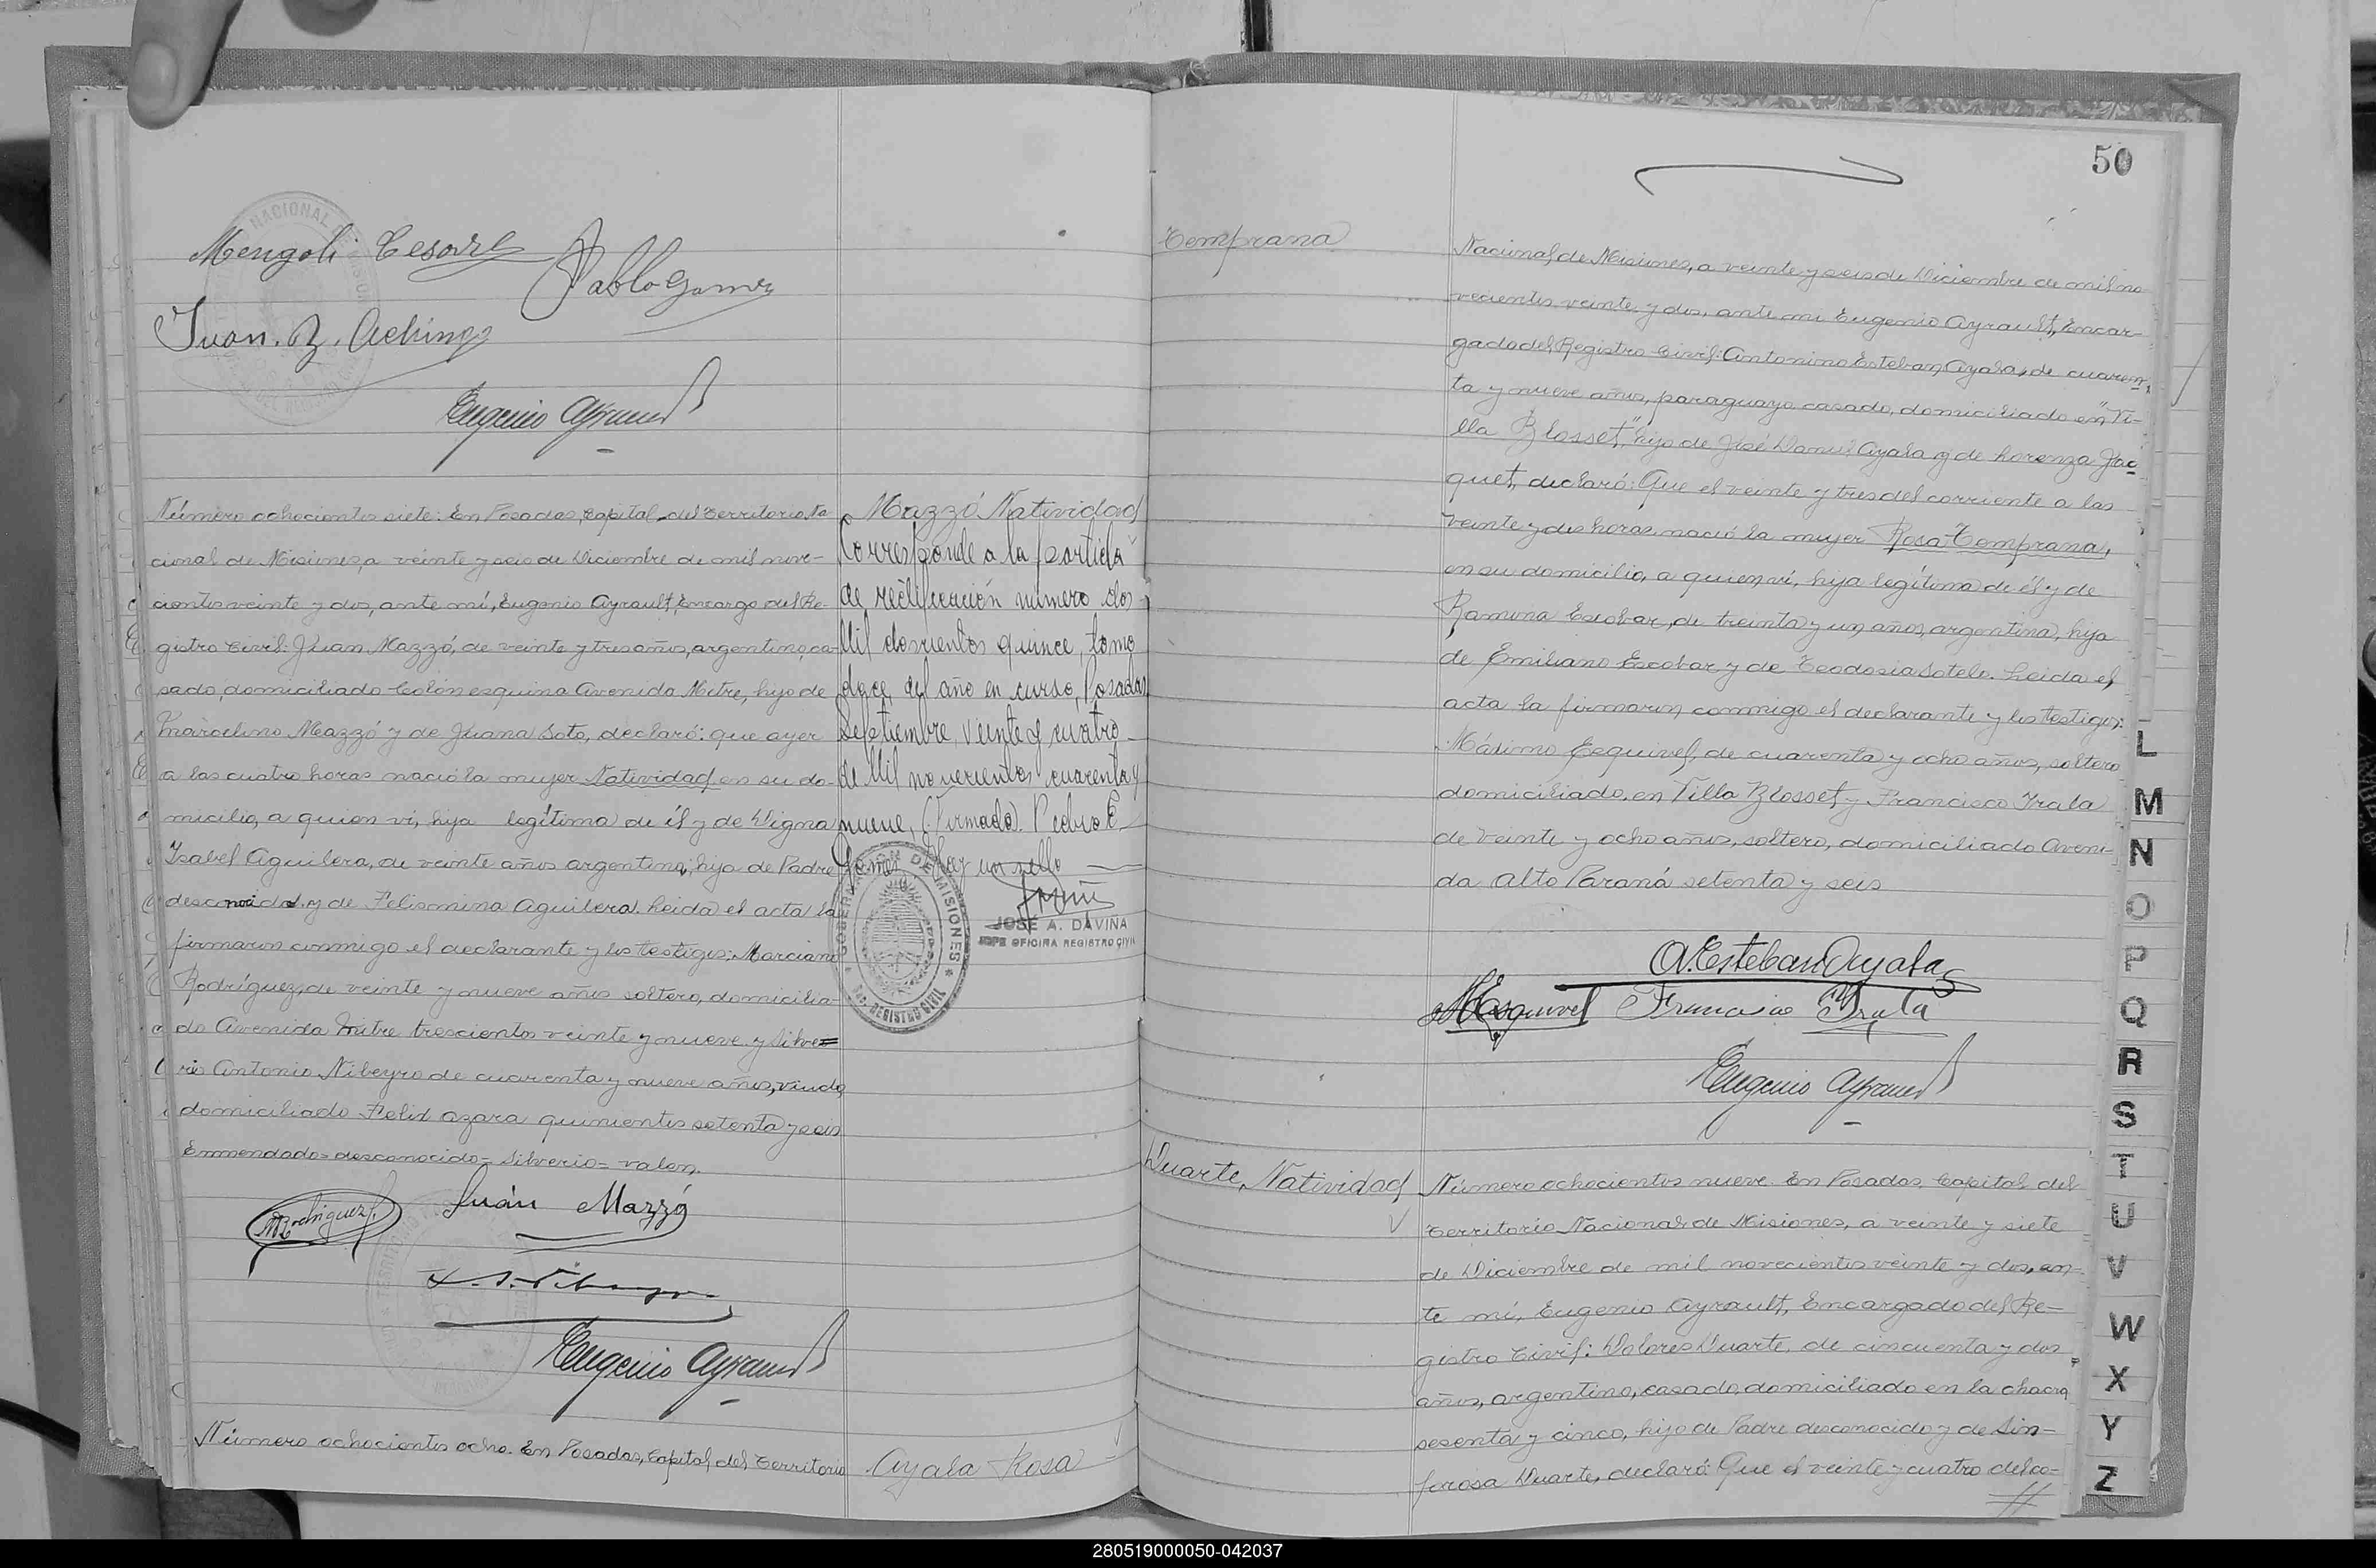 Mengoli Cesare
Pablo Gomez
Juan. B.
Eugenio Ayrault
Número ochocientos siete: En Posadas, Capital del Territorio Na-
cional de Misiones, a veinte y seis de Diciembre de mil nove-
cientos veinte y dos, ante mí, Eugenio Ayrault, Encargo del Re-
gistro Civil: Juan Mazzó, de veinte y tres años, argentino, ca-
sado, domiciliado Colón esquina Avenida Mitre, hijo de
Marcelino Mazzó y de Juana Soto, declaró: que ayer
a las cuatro horas nació la mujer Natividad en su do-
micilio, a quien vi, hija legítima de él y de Digna
Isabel Aguilera, de veinte años argentina, hija de Padre
desconocido y de Felismina Aguilera. Leida el acta la
firmaron conmigo el declarante y los testigos; Marciano
Rodríguez, de veinte y nueve años soltero, domicilia-
do Avenida Mitre trescientos veinte y nueve y Silve=
rio Antonio Nibeyro de cuarenta y nueve años, viudo,
domiciliado Felix Azara quinientos setenta y seis
Enmendado=desconocido=Silverio=valen.
MRodriguez
Juán Mazzó
Eugenio Ayrault
Número ochocientos ocho. En Posadas, Capital del Territorio
Mazzó Natividad
Corresponde a la partida
de rectificación número dos
Mil doscientos quince, tomo
doce del año en curso, Posadas
Septiembre, Veinte y cuatro
de Mil novecientos cuarenta y
nueve, (Firmado). Pedro E.
Gomez Hay un sello
GOBERNACION DE MISIONES
REGISTRO CIVIL
JOSÉ A. DAVIÑA
JEFE OFICINA REGISTRO CIVIL
Ayala Rosa
50
Temprana
Nacional de Misiones, a veinte y seis de Diciembre de mil no
vecientos veinte y dos, ante mi Eugenio Ayrault, Encar-
gado del Registro Civil: Antonino Esteban Ayala, de cuaren-
ta y nueve años, paraguayo casado, domiciliado en "Vi-
lla Blosset," hijo de José Daniel Ayala y de Lorenza Jac
quet, declaró: Que el veinte y tres del corriente a las
veinte y dos horas, nació la mujer Rosa Temprana,
en su domicilio, a quien vi, hija legítima de él y de
Ramona Escobar, de treinta y un años, argentina, hija
de Emiliano Escobar y de Teodosia Sotelo. Leida el
acta la firmaron conmigo el declarante y los testigos:
Máximo Esquivel, de cuarenta y ocho años, soltero
domiciliado, en Villa Blosset y Francisco Irala
de veinte y ocho años, soltero, domiciliado Aveni-
da Alto Paraná setenta y seis
A. Esteban Ayala
MEsquivel Francisco Irala
Eugenio Ayrault
Duarte, Natividad
Número ochocientos nueve. En Posadas, Capital del
Territorio Nacional de Misiones, a veinte y siete
de Diciembre de mil novecientos veinte y dos, an-
te mí, Eugenio Ayrault, Encargado del Re-
gistro Civil: Dolores Duarte, de cincuenta y dos
años, argentino, casado, domiciliado en la chacra
sesenta y cinco, hijo de Padre desconocido y de Sin-
forosa Duarte, declaró: Que el veinte y cuatro del co=
L
M
N
O
P
Q
R
S
T
U
V
W
X
Y
Z
280519000050-042037